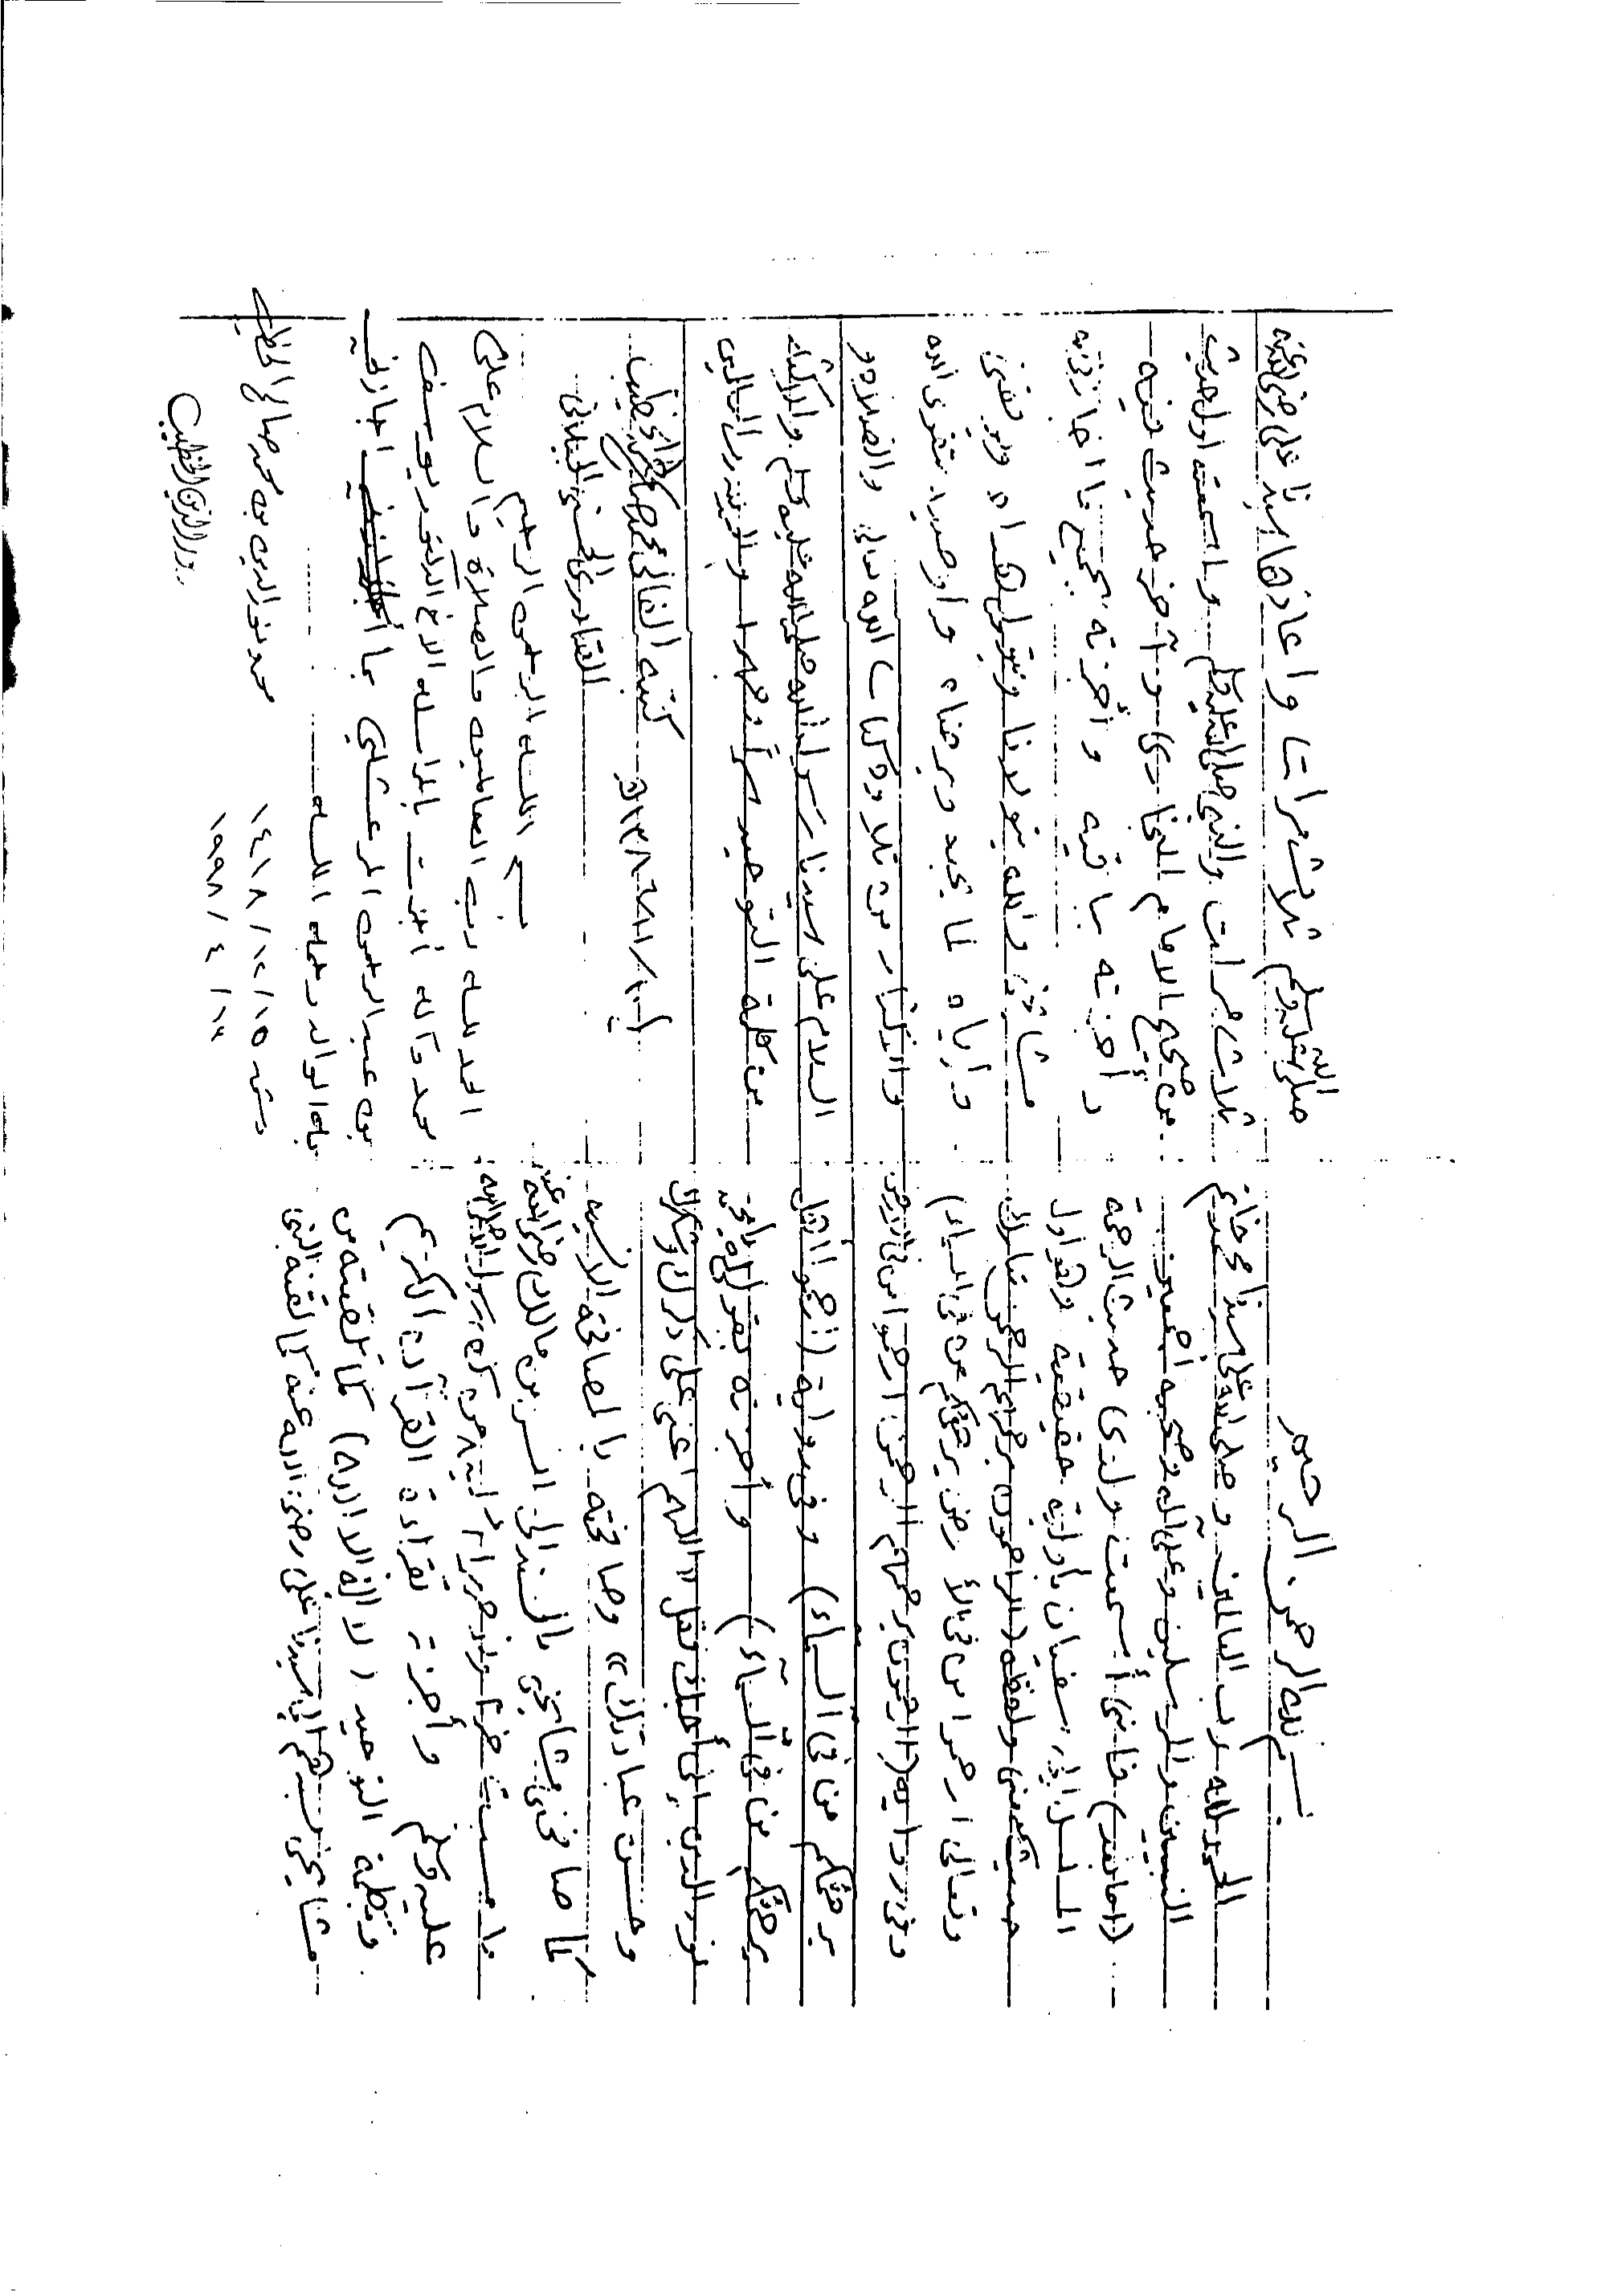 بسم الله الرحمن الرحيم
الحمد لله رب العالمين وصلى الله على سيدنا محمد خاتم
النبيين والمرسلين وعلى آله وصحبه أجمعين
(اما بعد) فانني أسمعت ولدي حديث الرحمة
المسلسل بأولية حقيقية وهو اول
حديث ولفظه (الراحمون يرحمهم الرحمن تبارك
وتعالى ارحموا من في الأرض يرحمكم من في السماء)
وفي رواية (الراحمون يرحمهم الرحمن ارحموا من في الارض
يرحمكم من في السماء) وفي رواية (ارحموا أهل
يرحمكم من في السماء) وأجزته بقولي
نور الدين إني أحبك فقل «اللهم اعني على ذكرك وشكرك
وحسن عبادتك» وصافحته بالمصافحة الأنسية
كما صافحني مشايخي بالسند الى انس بن مالك رضي الله عنه
ما مسست خزا ولا حريرا ألين من كف رسول الله صلى الله
عليه وسلم وأجزته بقراءة القرآن الكريم
وكلمة التوحيد (لا إله إلا الله) كما تلقيته من
مشايخي بسندهم إلى سيدنا علي رضي الله عنه كما لقنه النبي
صلى الله عليه وسلم ثلاث مرات واعادها سيدنا علي رضي الله عنه
ثلاث مرات والنبي صلى الله عليه وسلم واسمعته اول حديث
من صحيح الامام البخاري وآخر حديث فيه
وأجزته باقيه وأجزته بجميع ما اجازني به
مشائخي والله يتولانا ويتولى هداه ويوفقني
وإياه لما يحبه ويرضاه وأوصيه بتقوى الله
والاكثار من تلاوة كتاب الله تعالى والصلاة و
السلام على سيدنا رسول الله صلى الله عليه وسلم والاكثار
من كلمة التوحيد سرا وجهرا والحمد لله رب العالمين
كتبه الفاني محمد صالح الخطيب
القادري الحسني الجيلاني
بسم الله الرحمن الرحيم
الحمد لله رب العالمين والصلاة والسلام على
محمد وآله أجزت بالمراسلة الأخ الدكتور يوسف
بن عبد الرحمن المرعشلي بما أجازني
به الوالد رحمه الله
دمشق ١٥/١٢/١٤١٨ محمد نور الدين بن محمد صالح الخطيب
١٢/٤/١٩٩٨
نور الدين الخطيب